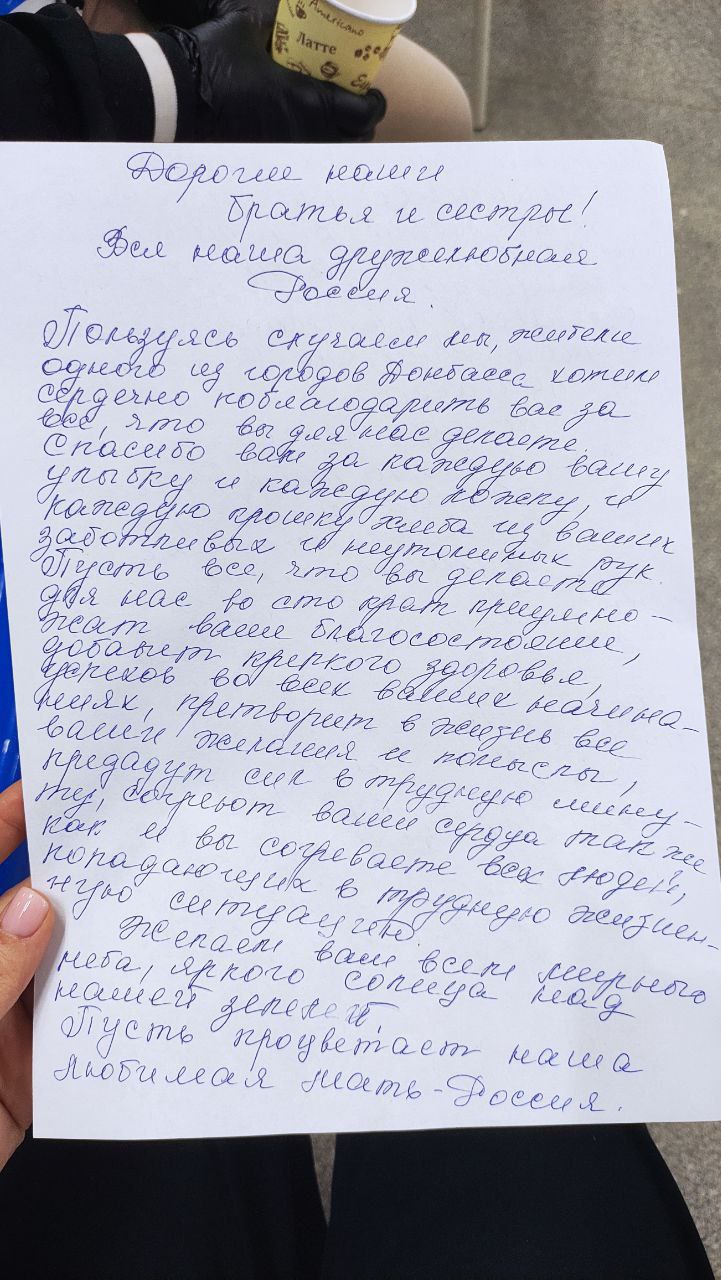 Americano
Латте
Дорогие наши
братья и сестры!
Вся наша дружелюбная
Россия.
Пользуясь случаем мы, жители
одного из городов Донбасса хотим
сердечно поблагодарить вас за
все, что вы для нас делаете.
Спасибо вам за каждую вашу
улыбку и каждую ложку, и
каждую крошку хлеба из ваших
заботливых и неутомимых рук.
Пусть все, что вы делаете
для нас во сто крат приумно-
жат ваше благосостояние,
добавит крепкого здоровья,
успехов во всех ваших начина-
ниях, претворит в жизнь все
ваши желания и помыслы,
предадут сил в трудную мину-
ту, согреют ваши сердца так же
как и вы согреваете всех людей,
попадающих в трудную жизнен-
ную ситуацию.
Желаем вам всем мирного
неба, яркого солнца над
нашей землей.
Пусть процветает наша
любимая мать-Россия.